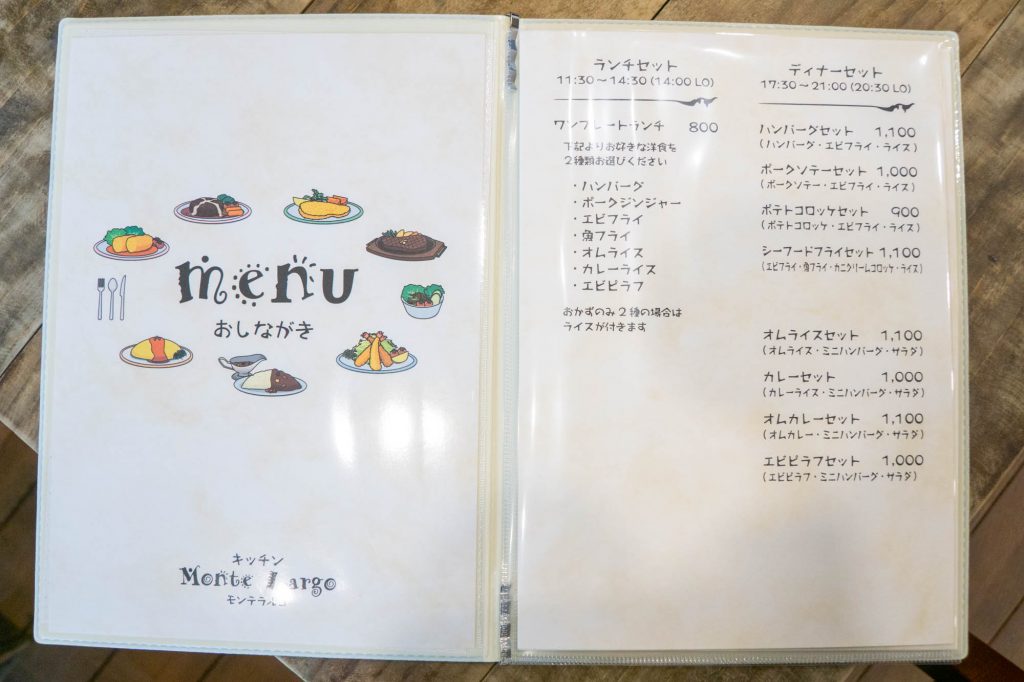 menu
おしながき
キッチン
Monte Largo
モンテラルゴ
ランチセット
11:30～14:30(14:00 LO)
ワンプレートランチ 800
下記よりお好きな洋食を
2種類お選びください
・ハンバーグ
・ポークジンジャー
・エビフライ
・魚フライ
・オムライス
・カレーライス
・エビピラフ
おかずのみ2種の場合は
ライスが付きます
ディナーセット
17:30～21:00(20:30 LO)
ハンバーグセット 1,100
(ハンバーグ・エビフライ・ライス)
ポークソテーセット 1,000
(ポークソテー・エビフライ・ライス)
ポテトコロッケセット 900
(ポテトコロッケ・エビフライ・ライス)
シーフードフライセット 1,100
(エビフライ・魚フライ・カニクリームコロッケ・ライス)
オムライスセット 1,100
(オムライス・ミニハンバーグ・サラダ)
カレーセット 1,000
(カレーライス・ミニハンバーグ・サラダ)
オムカレーセット 1,100
(オムカレー・ミニハンバーグ・サラダ)
エビピラフセット 1,000
(エビピラフ・ミニハンバーグ・サラダ)